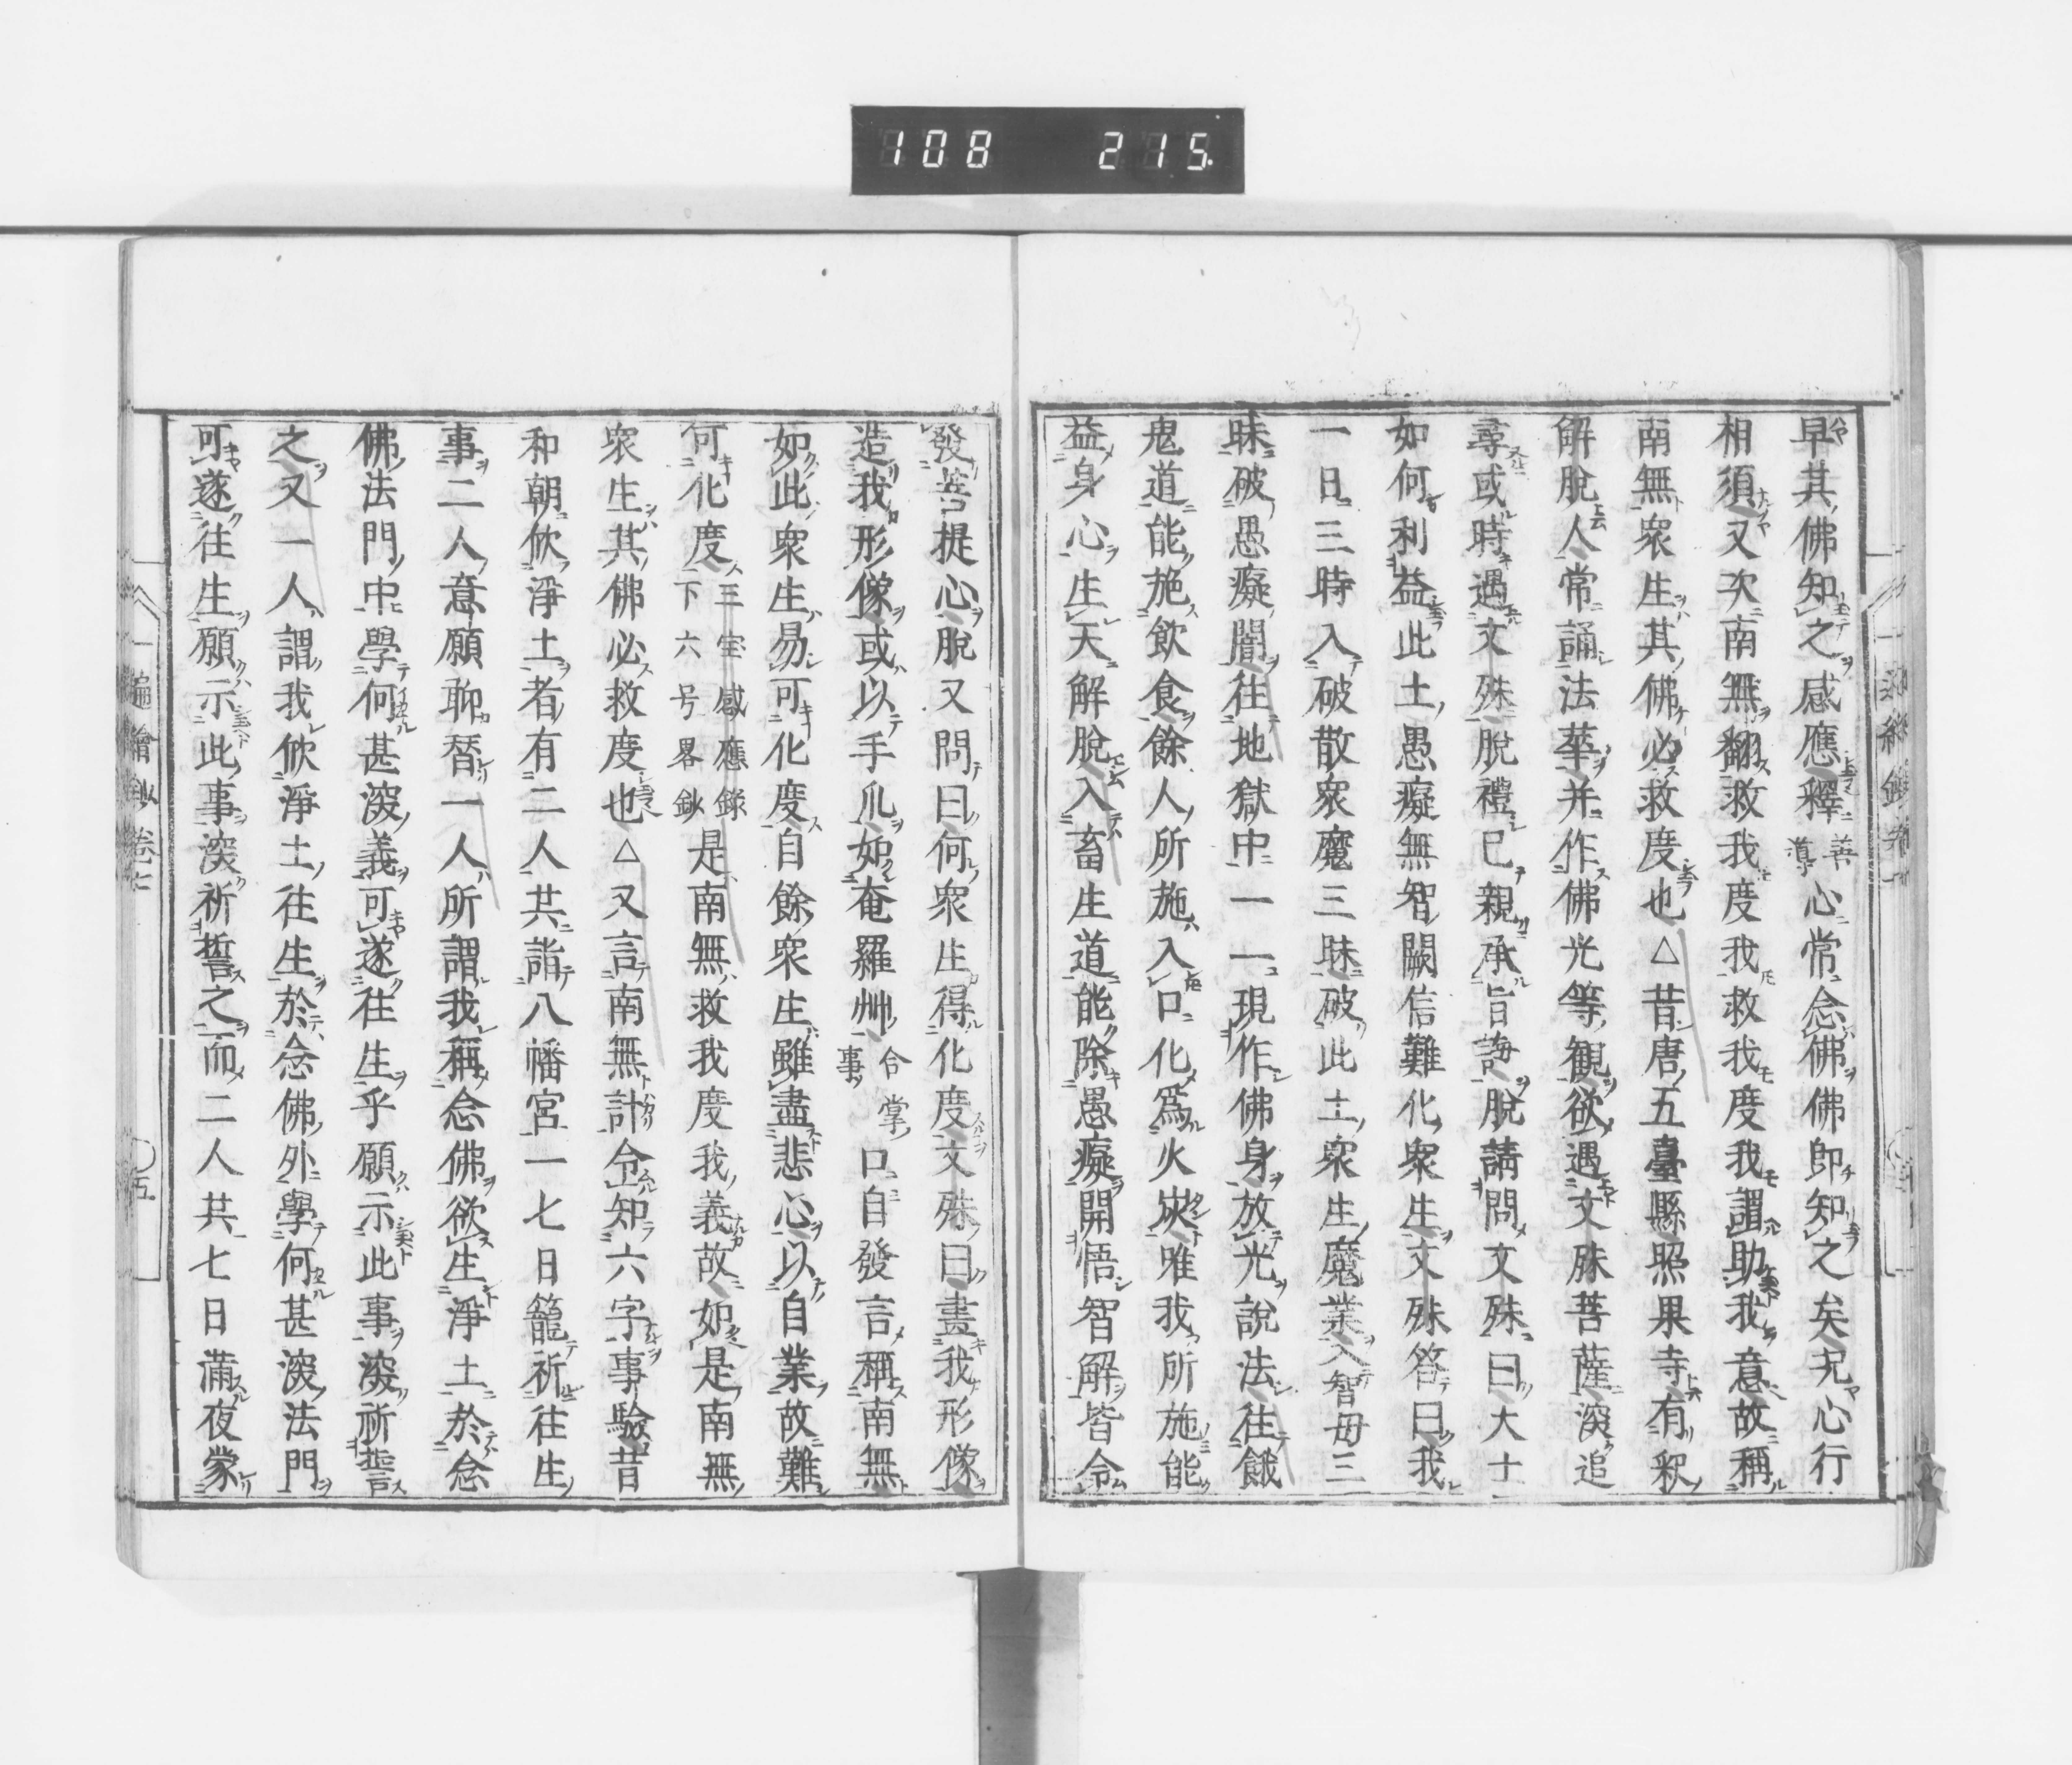 108 215.
早其佛知之感應釋善導心常念佛佛即知之矣況心行
相須又次南無翻救我度我救我度我謂助我意故稱
南無衆生其佛必救度也△昔唐五臺縣照果寺有釈
解脫人常誦法華并作佛光等観欲遇文殊菩薩深追
尋或時遇文殊脫禮已親承旨誨脫請問文殊曰大士
如何利益此土愚癡無智闕信難化衆生文殊答曰我
一日三時入破散衆魔三昧破此土衆生魔業入智母三
昧破愚癡闇往地獄中一一現作佛身放光說法往餓
鬼道能施飲食餘人所施入口化為火炭唯我所施能
益身心生天解脫入畜生道能除愚癡開悟智解皆令
發菩提心脫又問曰何衆生得化度文殊曰畫我形像
造我形像或以手爪如奄羅艸合掌事口自發言稱南無
如此衆生易可化度自餘衆生雖盡悲心以自業故難
何化度三宝感應錄下六号畧鈔是南無救我度我義故如是南無
衆生其佛必救度也△又言南無計令知六字事驗昔
和朝欣淨土者有二人共詣八幡宮一七日籠祈往生
事二人意願聊替一人所謂我稱念佛欲生淨土於念
佛法門中學何甚深義可遂往生乎願示此事深祈誓
之又一人謂我欣淨土往生於念佛外學何甚深法門
可遂往生願示此事深祈誓之而二人共七日滿夜蒙
一遍繪鈔卷七
五